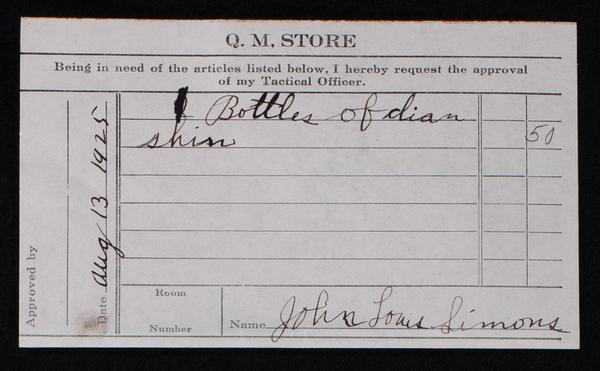 Q. M. STORE
Being in need of the articles listed below, I hereby request the approval
of my Tactical Officer.
Bottles of dian
shin
50
Approved by
Date Aug 13 1925
Room
Number
Name John Louis Simons